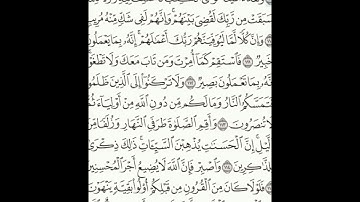 سَبَقَتْ مِن رَّبِّكَ لَقُضِىَ بَيْنَهُمْ ۚ وَإِنَّهُمْ لَفِى شَكٍّ مِّنْهُ مُرِيبٍ
وَإِنَّ كُلًّا لَّمَّا لَيُوَفِّيَنَّهُمْ رَبُّكَ أَعْمَٰلَهُمْ ۚ إِنَّهُۥ بِمَا يَعْمَلُونَ
خَبِيرٌ ١١١ فَٱسْتَقِمْ كَمَآ أُمِرْتَ وَمَن تَابَ مَعَكَ وَلَا تَطْغَوْا۟
إِنَّهُۥ بِمَا تَعْمَلُونَ بَصِيرٌ ١١٢ وَلَا تَرْكَنُوٓا۟ إِلَى ٱلَّذِينَ ظَلَمُوا۟
فَتَمَسَّكُمُ ٱلنَّارُ وَمَا لَكُم مِّن دُونِ ٱللَّهِ مِنْ أَوْلِيَآءَ
لَا تُنصَرُونَ ١١٣ وَأَقِمِ ٱلصَّلَوٰةَ طَرَفَىِ ٱلنَّهَارِ وَزُلَفًا مِّنَ
ٱلَّيْلِ إِنَّ ٱلْحَسَنَٰتِ يُذْهِبْنَ ٱلسَّيِّـَٔاتِ ۚ ذَٰلِكَ ذِكْرَىٰ
لِلذَّٰكِرِينَ ١١٤ وَٱصْبِرْ فَإِنَّ ٱللَّهَ لَا يُضِيعُ أَجْرَ ٱلْمُحْسِنِينَ
فَلَوْلَا كَانَ مِنَ ٱلْقُرُونِ مِن قَبْلِكُمْ أُو۟لُوا۟ بَقِيَّةٍ يَنْهَوْنَ